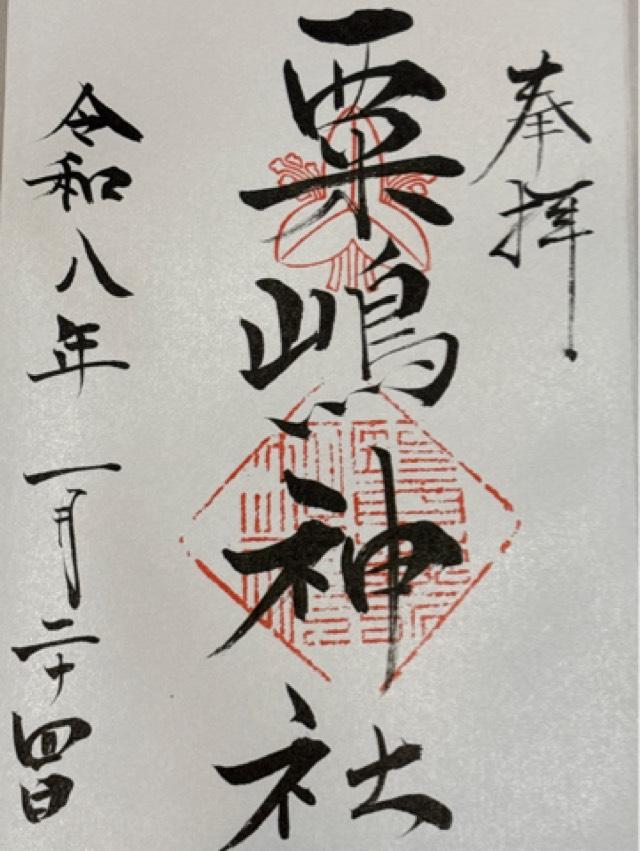 奉拝
粟嶋神社
令和八年一月二十四日